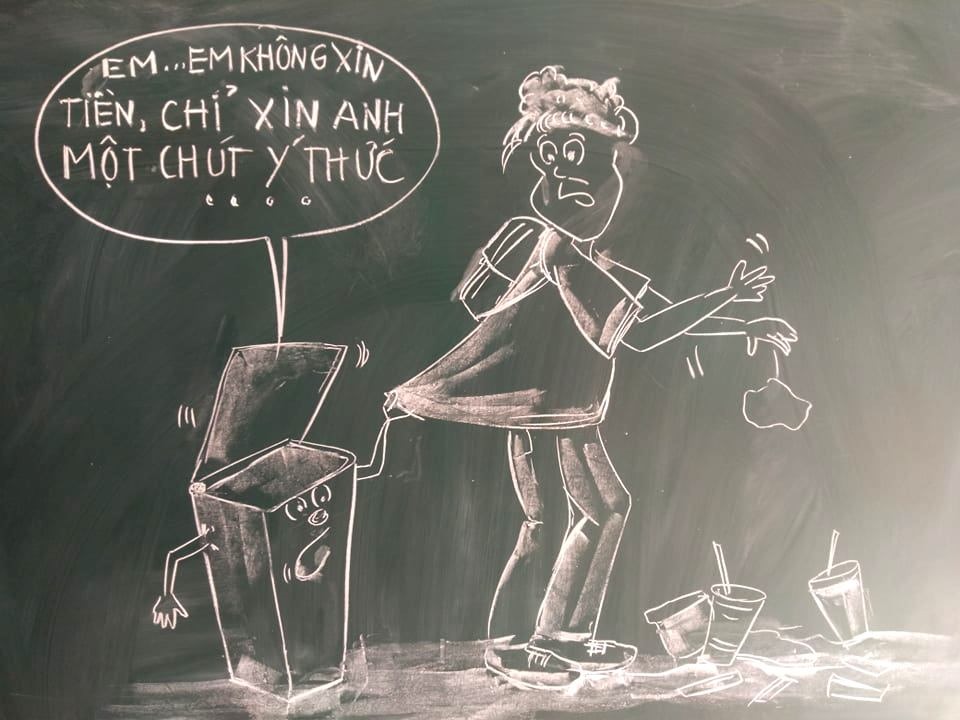 EM...EM KHÔNG XIN
TIỀN, CHỈ XIN ANH
MỘT CHÚT Ý THỨC
....